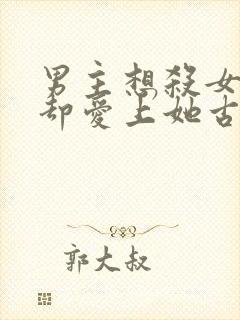 男主想殺女
却愛上她古
郭大叔